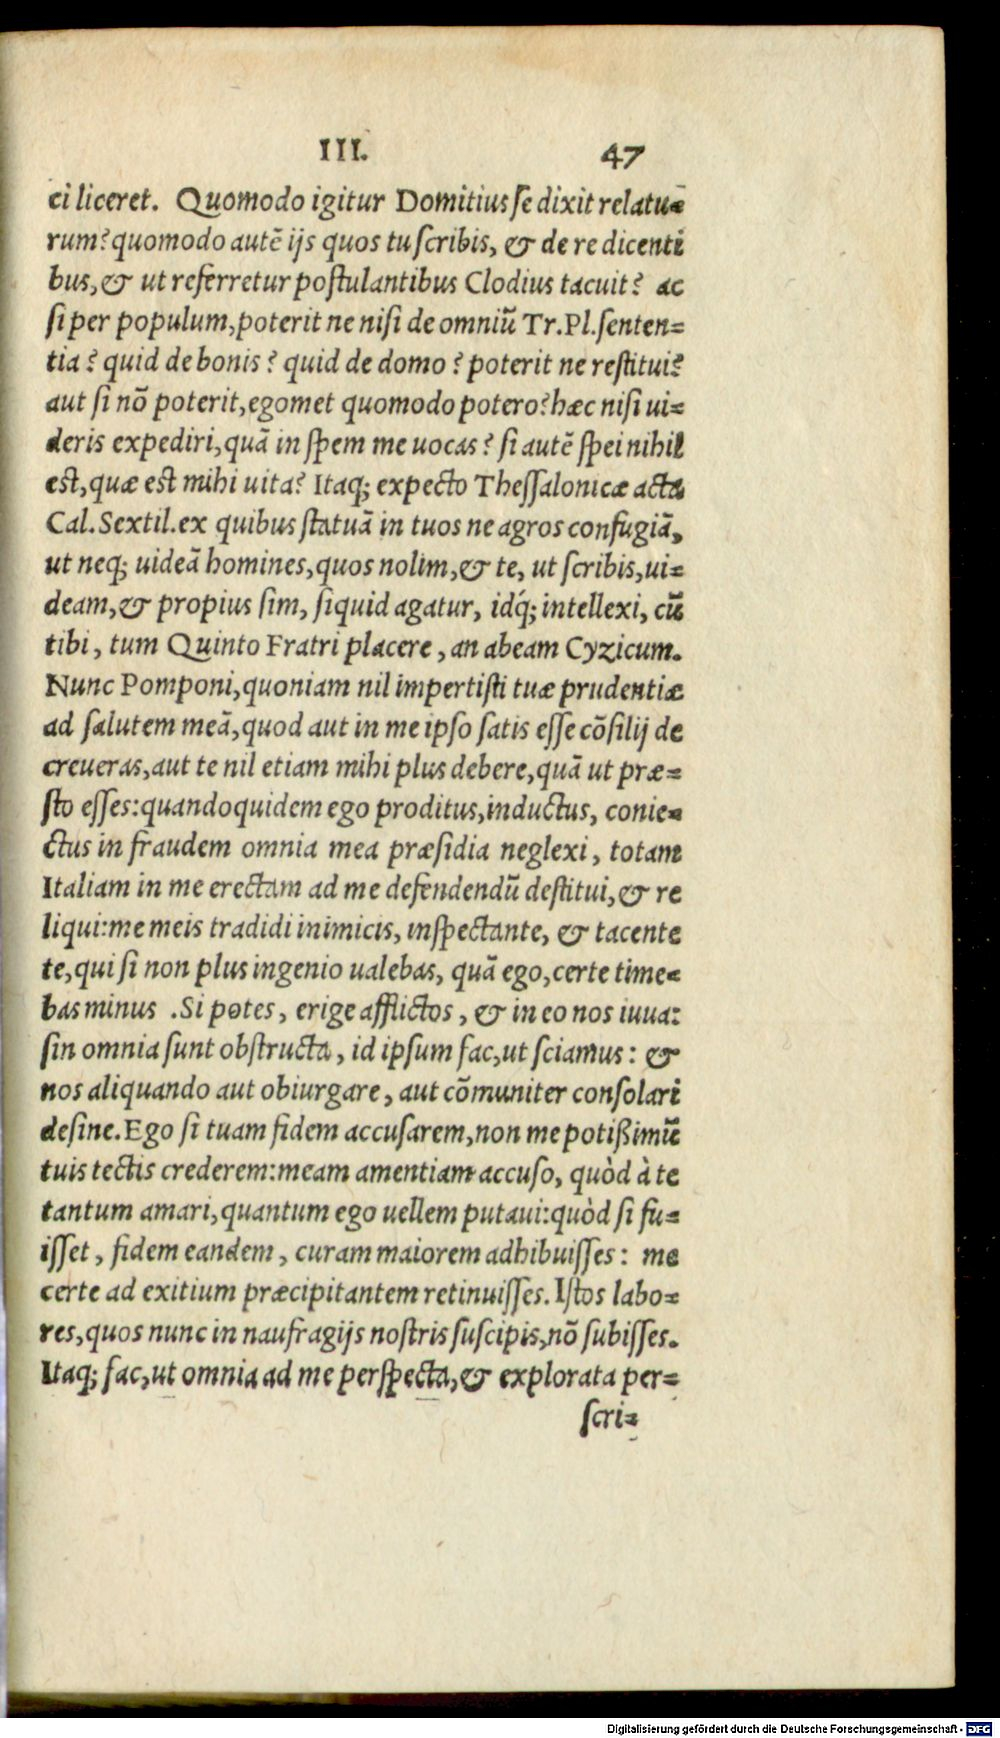 III. 47
ci liceret. Quomodo igitur Domitius se dixit relatu=
rum? quomodo autē ijs quos tu scribis, & de re dicenti
bus, & ut referretur postulantibus Clodius tacuit? ac
si per populum, poterit ne nisi de omniū Tr. Pl. senten=
tia? quid de bonis? quid de domo? poterit ne restitui?
aut si nō poterit, egomet quomodo potero? hæc nisi ui=
deris expediri, quā in spem me uocas? si autē spei nihil
est, quæ est mihi uita? Itaq; expecto Thessalonicæ acta
Cal. Sextil. ex quibus statuā in tuos ne agros confugiā,
ut neq; uideā homines, quos nolim, & te, ut scribis, ui=
deam, & propius sim, siquid agatur, idq́; intellexi, cū
tibi, tum Quinto Fratri placere, an abeam Cyzicum.
Nunc Pomponi, quoniam nil impertisti tuæ prudentiæ
ad salutem meā, quod aut in me ipso satis esse cōsilij de
creueras, aut te nil etiam mihi plus debere, quā ut præ=
sto esses: quandoquidem ego proditus, inductus, conie=
ctus in fraudem omnia mea præsidia neglexi, totam
Italiam in me erectam ad me defendendū destitui, & re
liqui: me meis tradidi inimicis, inspectante, & tacente
te, qui si non plus ingenio ualebas, quā ego, certe time=
bas minus. Si potes, erige afflictos, & in eo nos iuua:
sin omnia sunt obstructa, id ipsum fac, ut sciamus: &
nos aliquando aut obiurgare, aut cōmuniter consolari
desine. Ego si tuam fidem accusarem, non me potißimū
tuis tectis crederem: meam amentiam accuso, quòd à te
tantum amari, quantum ego uellem putaui: quòd si fu=
isset, fidem eandem, curam maiorem adhibuisses: me
certe ad exitium præcipitantem retinuisses. Istos labo=
res, quos nunc in naufragijs nostris suscipis, nō subisses.
Itaq; fac, ut omnia ad me perspecta, & explorata per=
scri=
Digitalisierung gefördert durch die Deutsche Forschungsgemeinschaft - DFG